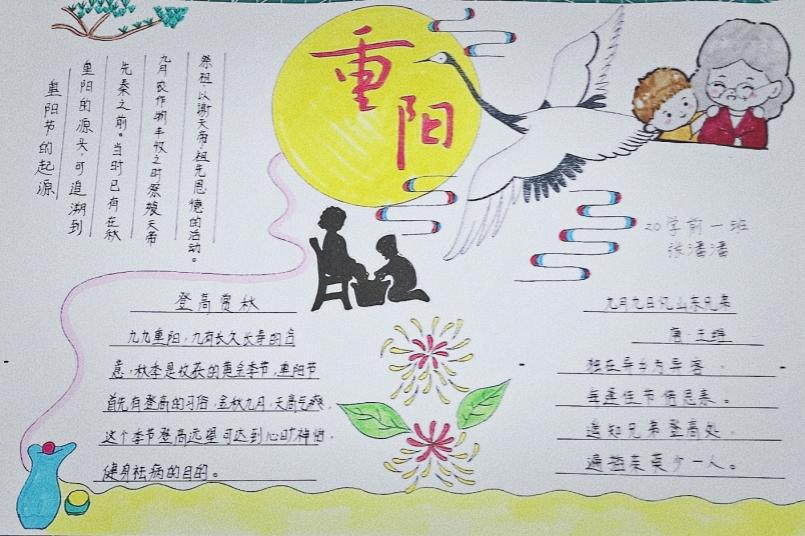 重阳
重阳节的起源
重阳的源头，可追溯到
先秦之前。当时已有在秋
九月农作物丰收之时祭飨天帝
祭祖，以谢天帝、祖先恩德的活动。
20学前一班
张潘潘
登高赏秋
九九重阳，九有长久长寿的含
意，秋季是收获的黄金季节，重阳节
首先有登高的习俗，金秋九月，天高气爽，
这个季节登高远望可达到心旷神怡，
健身祛病的目的。
九月九日忆山东兄弟
唐·王维
独在异乡为异客，
每逢佳节倍思亲。
遥知兄弟登高处，
遍插茱萸少一人。